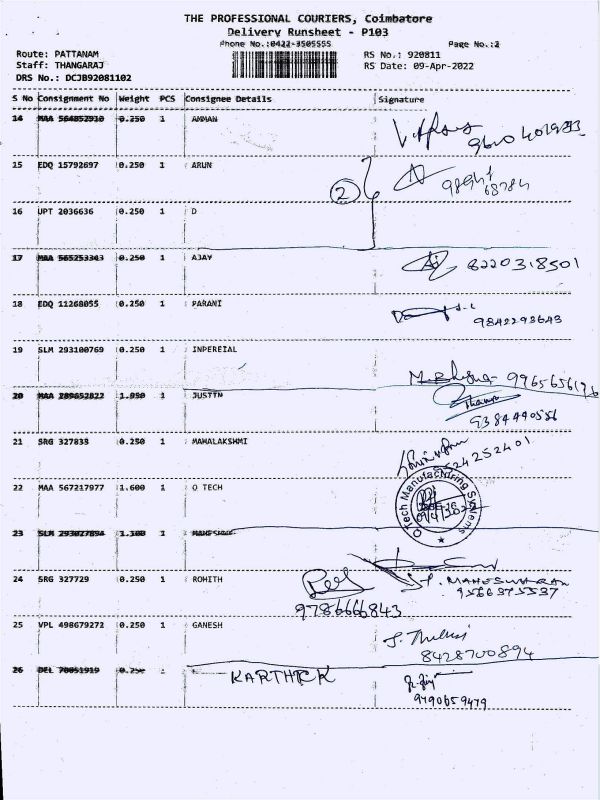 THE PROFESSIONAL COURIERS, Coimbatore
Delivery Runsheet - P103
Phone No.:0422-3505555 Page No.:2
Route: PATTANAM RS No.: 920811
Staff: THANGARAJ RS Date: 09-Apr-2022
DRS No.: DCJB92081102
S No Consignment No Weight PCS Consignee Details Signature
14 MAA 564852910 0.250 1 AMMAN
15 EDQ 15792697 0.250 1 ARUN
2
16 UPT 2036636 0.250 1 D
17 MAA 565253303 0.250 1 AJAY 8220318501
18 EDQ 11268055 0.250 1 PARANI
9842293643
19 SLM 293100769 0.250 1 INPEREIAL
20 MAA 289652822 1.050 1 JUSTIN
9384440556
21 SRG 327833 0.250 1 MAHALAKSHMI
22 MAA 567217977 1.600 1 O TECH
O Tech Manufacturing Systems
23 SLM 293027894 1.100 1
24 SRG 327729 0.250 1 ROHITH
MAHESWARAN
9566375537
9786666843
25 VPL 498679272 0.250 1 GANESH
8428700894
26 DEL 70051919 KARTHICK
9790659479